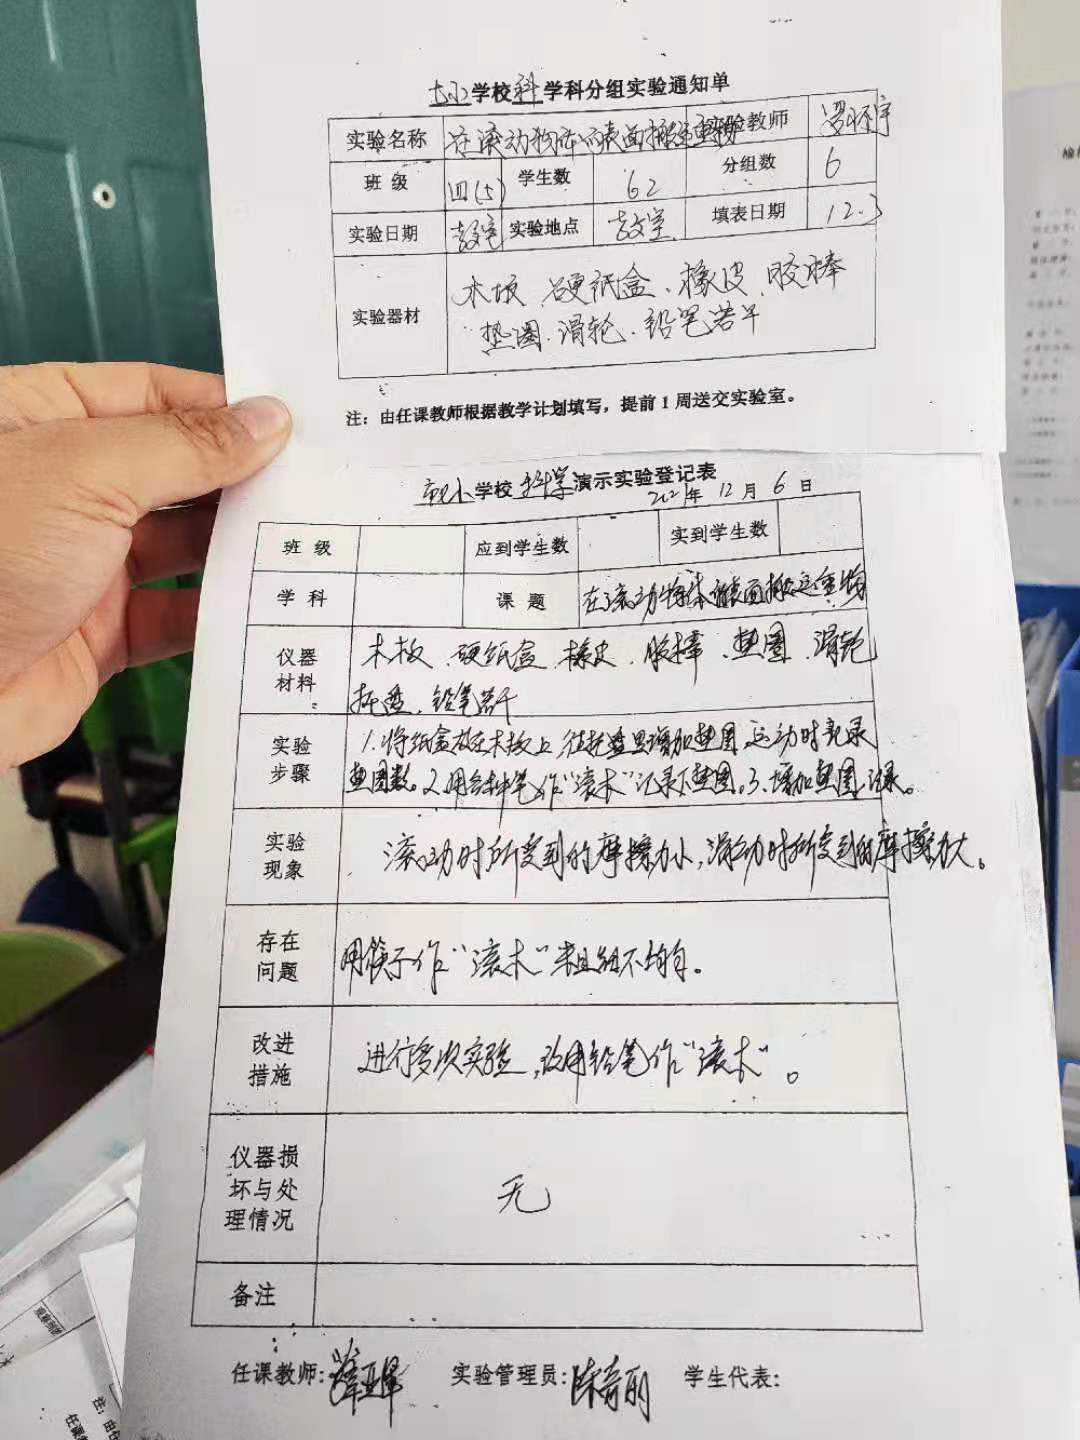 小学校科学科分组实验通知单
实验名称 在滚动物体的表面搬运重物 实验教师
班级 四(5) 学生数 62 分组数 6
实验日期 教室 实验地点 教室 填表日期 12.3
实验器材 木板、硬纸盒、橡皮、胶棒
垫圈、滑轮、铅笔若干
注：由任课教师根据教学计划填写，提前1周送交实验室。
小学校科学演示实验登记表
2021年12月6日
班级 应到学生数 实到学生数
学科 课题 在滚动物体的表面搬运重物
仪器材料 木板、硬纸盒、橡皮、胶棒、垫圈、滑轮
托盘、铅笔若干
实验步骤 1.将纸盒放在木板上,往托盘里增加垫圈,运动时记录
垫圈数。2.用各种笔作“滚木”记录下垫圈。3.增加垫圈,记录。
实验现象 滚动时所受到的摩擦力小,滑动时所受到的摩擦力大。
存在问题 用筷子作“滚木”粗细不均匀。
改进措施 进行多次实验,改用铅笔作“滚木”。
仪器损坏与处理情况 无
备注
任课教师: 实验管理员: 学生代表: